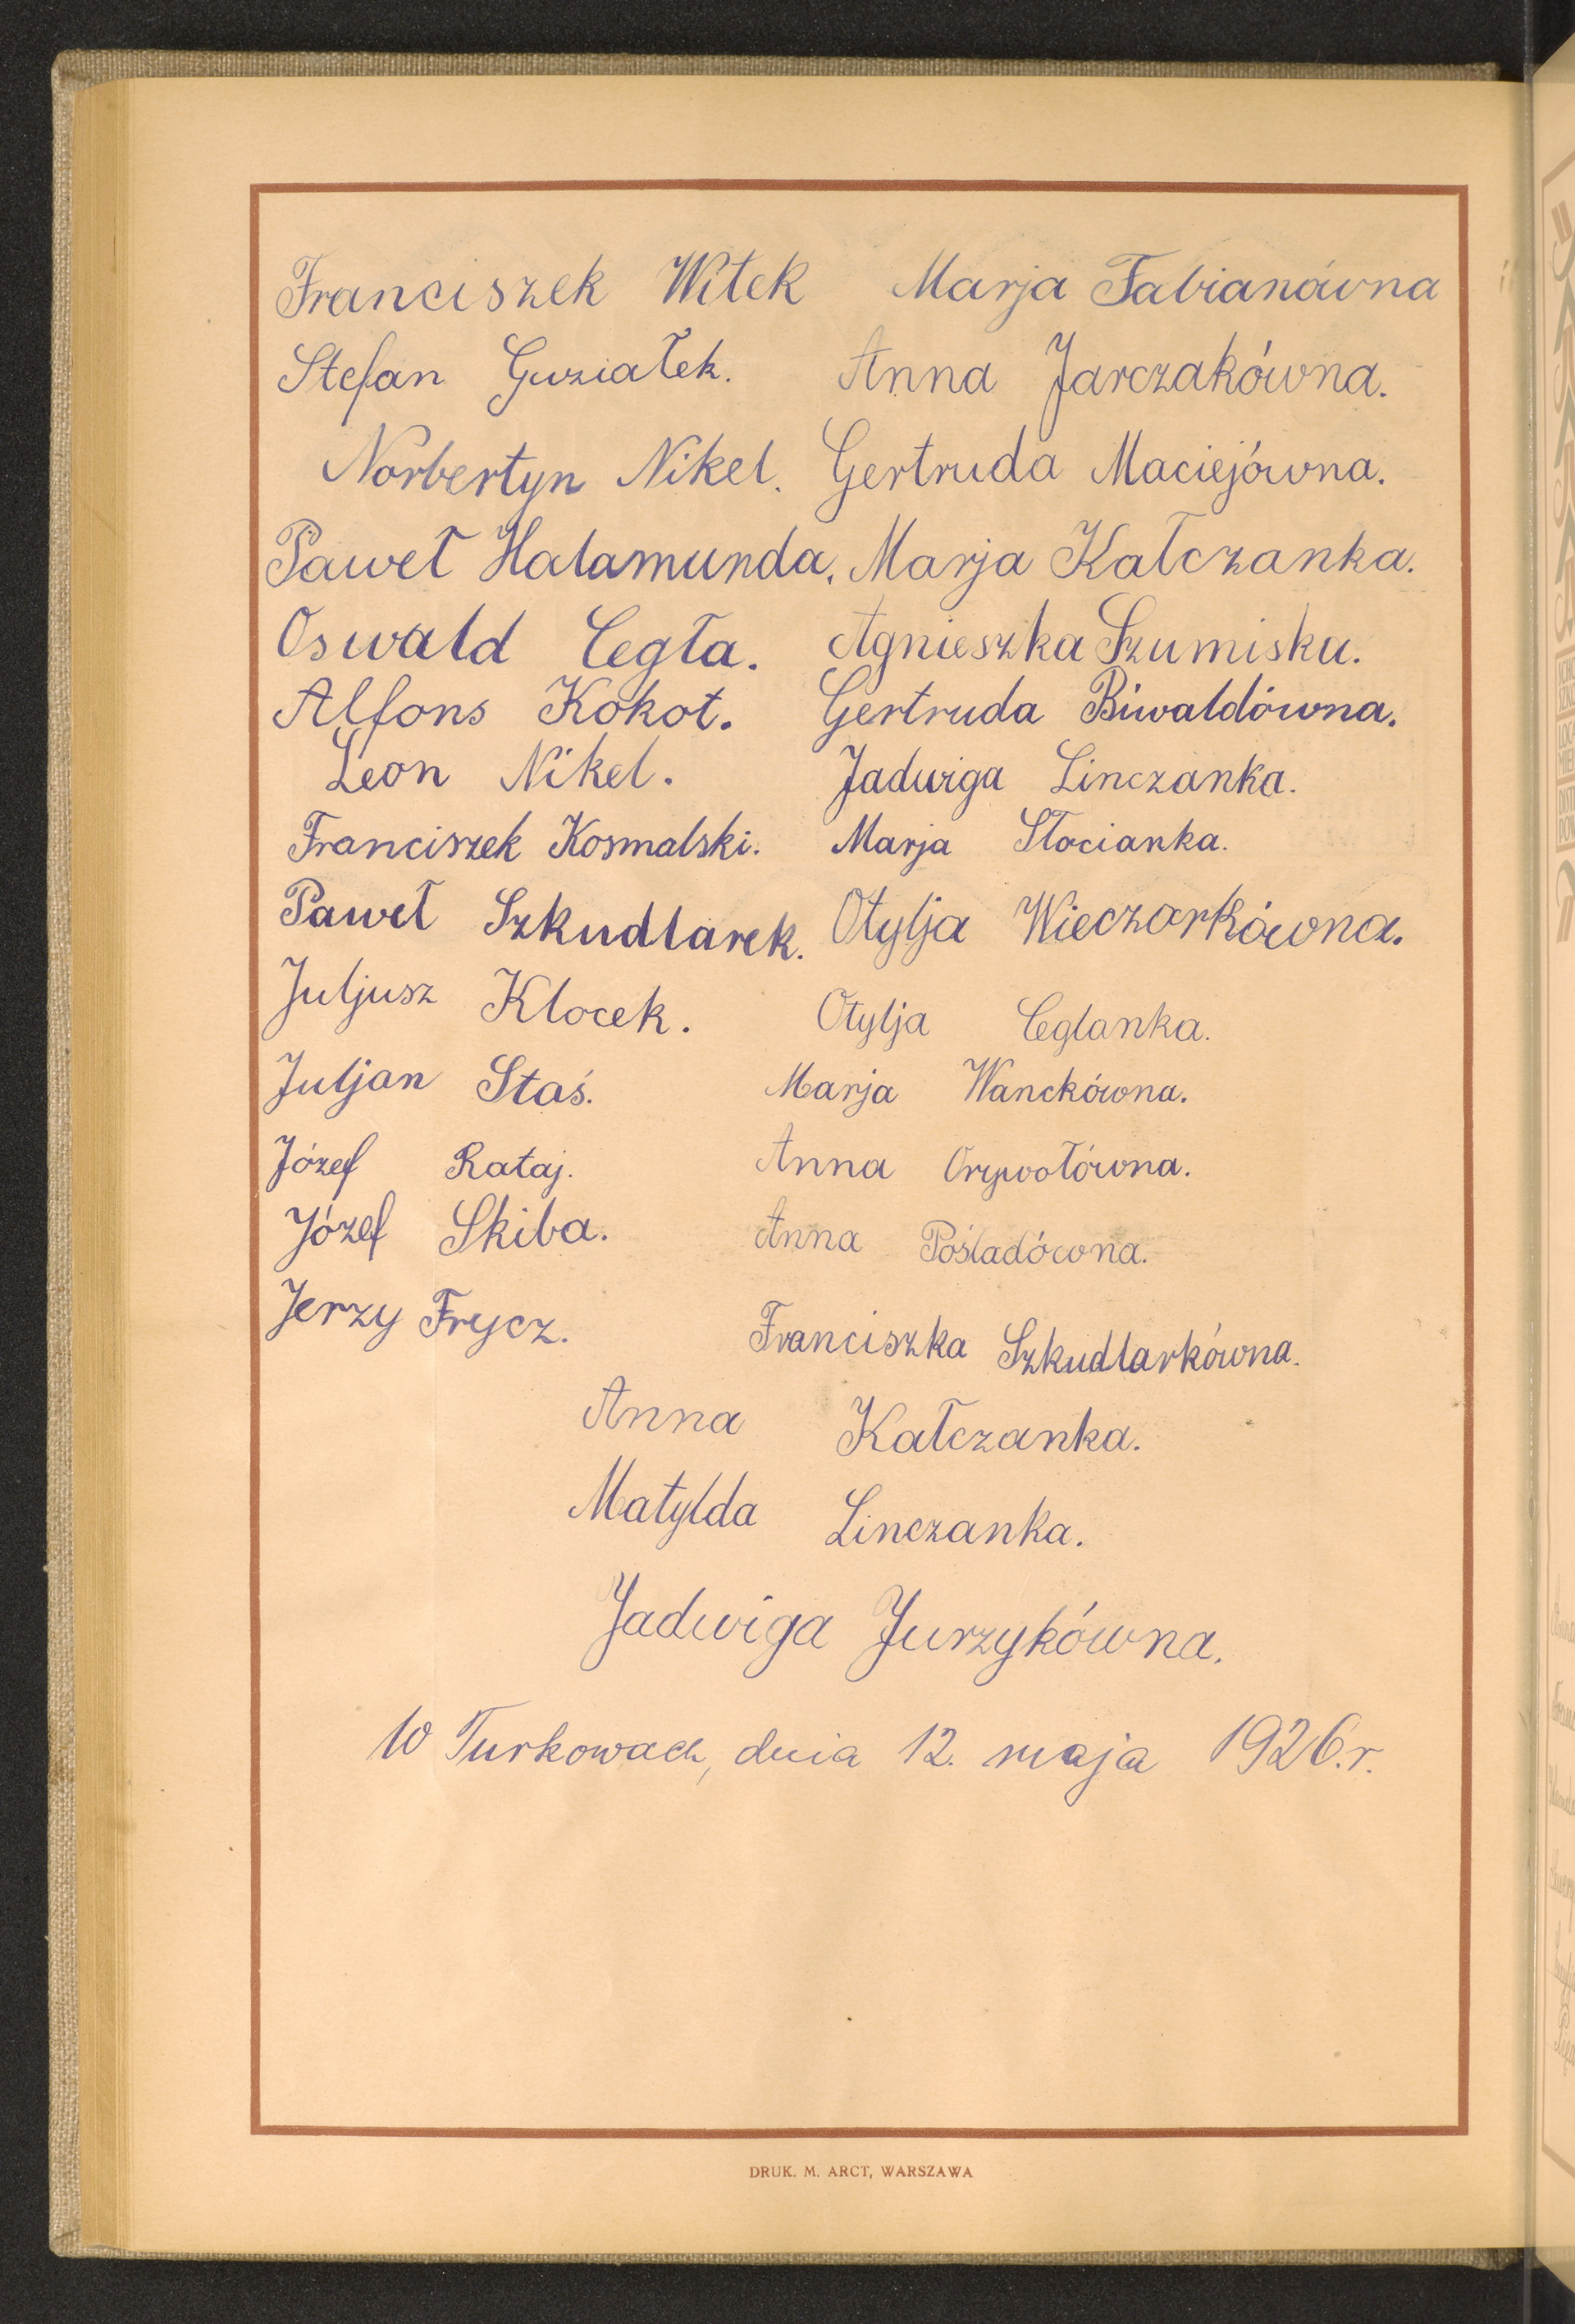 Franciszek Witek Marja Fabianówna
Stefan Guziałek. Anna Jarczakówna.
Norbertyn Nikel. Gertruda Maciejówna.
Paweł Halamunda. Marja Kałczanka.
Oswald Cegła. Agnieszka Szumiska.
Alfons Kokot. Gertruda Biwaldówna.
Leon Nikel. Jadwiga Linczanka.
Franciszek Kosmalski. Marja Słocianka.
Paweł Szkudlarek. Otylja Wieczorkówna.
Juljusz Klocek. Otylja Ceglanka.
Juljan Staś. Marja Wanckówna.
Józef Rataj. Anna
Józef Skiba. Anna Pośladówna.
Jerzy Frycz. Franciszka Szkudlarkówna.
Anna Kałczanka.
Matylda Linczanka.
Jadwiga Jurzykówna.
W Turkowach, dnia 12. maja 1926.r.
DRUK. M. ARCT, WARSZAWA